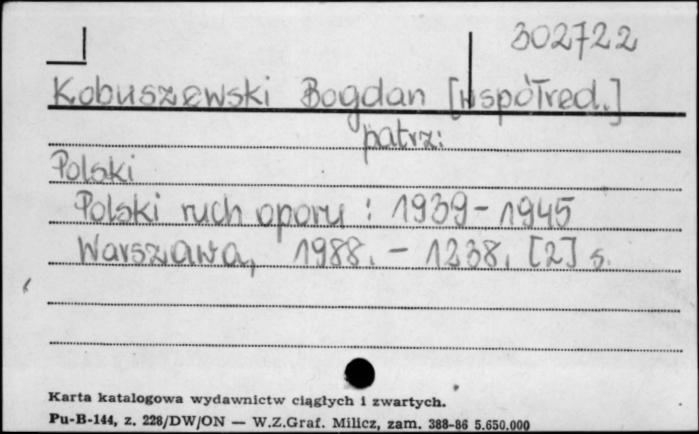 302722
Kobuszewski Bogdan [współred.]
patrz:
Polski
Polski ruch oporu : 1939 - 1945
Warszawa, 1988. - 1238, [2] s.
Karta katalogowa wydawnictw ciągłych i zwartych.
Pu-B-144, z. 228/DW/ON — W.Z.Graf. Milicz, zam. 388-86 5.650.000